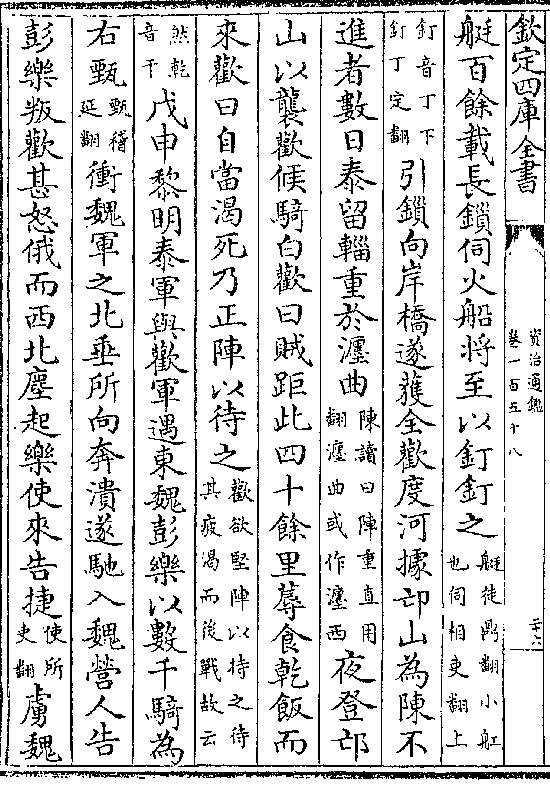 欽定四庫全書
資治通鑑
卷一百五十八
艇百餘載長鎖伺火船將至以釘釘之艇徒鼎翻小舡也伺相吏翻上
釘音丁下釘丁定翻引鎖向岸橋遂獲全歡度河據邙山為陳不
進者數日泰留輜重於瀍曲陳讀曰陣重直用翻瀍曲或作瀍西夜登邙
山以襲歡候騎白歡曰賊距此四十餘里蓐食乾飯而
來歡曰自當渴死乃正陣以待之歡欲堅陣以待之待其疲渴而後戰故云
然乾音干戊申黎明泰軍與歡軍遇東魏彭樂以數千騎為
右甄甄稽延翻衝魏軍之北垂所向奔潰遂馳入魏營人告
彭樂叛歡甚怒俄而西北塵起樂使來告捷使所吏翻虜魏